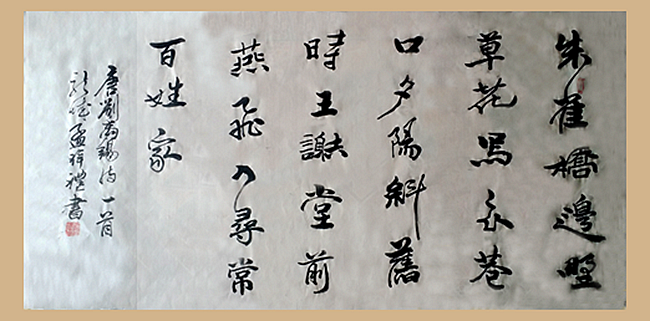 朱雀橋邊野
草花烏衣巷
口夕陽斜舊
時王謝堂前
燕飛入尋常
百姓家
唐劉禹錫詩一首
孟祥禮書